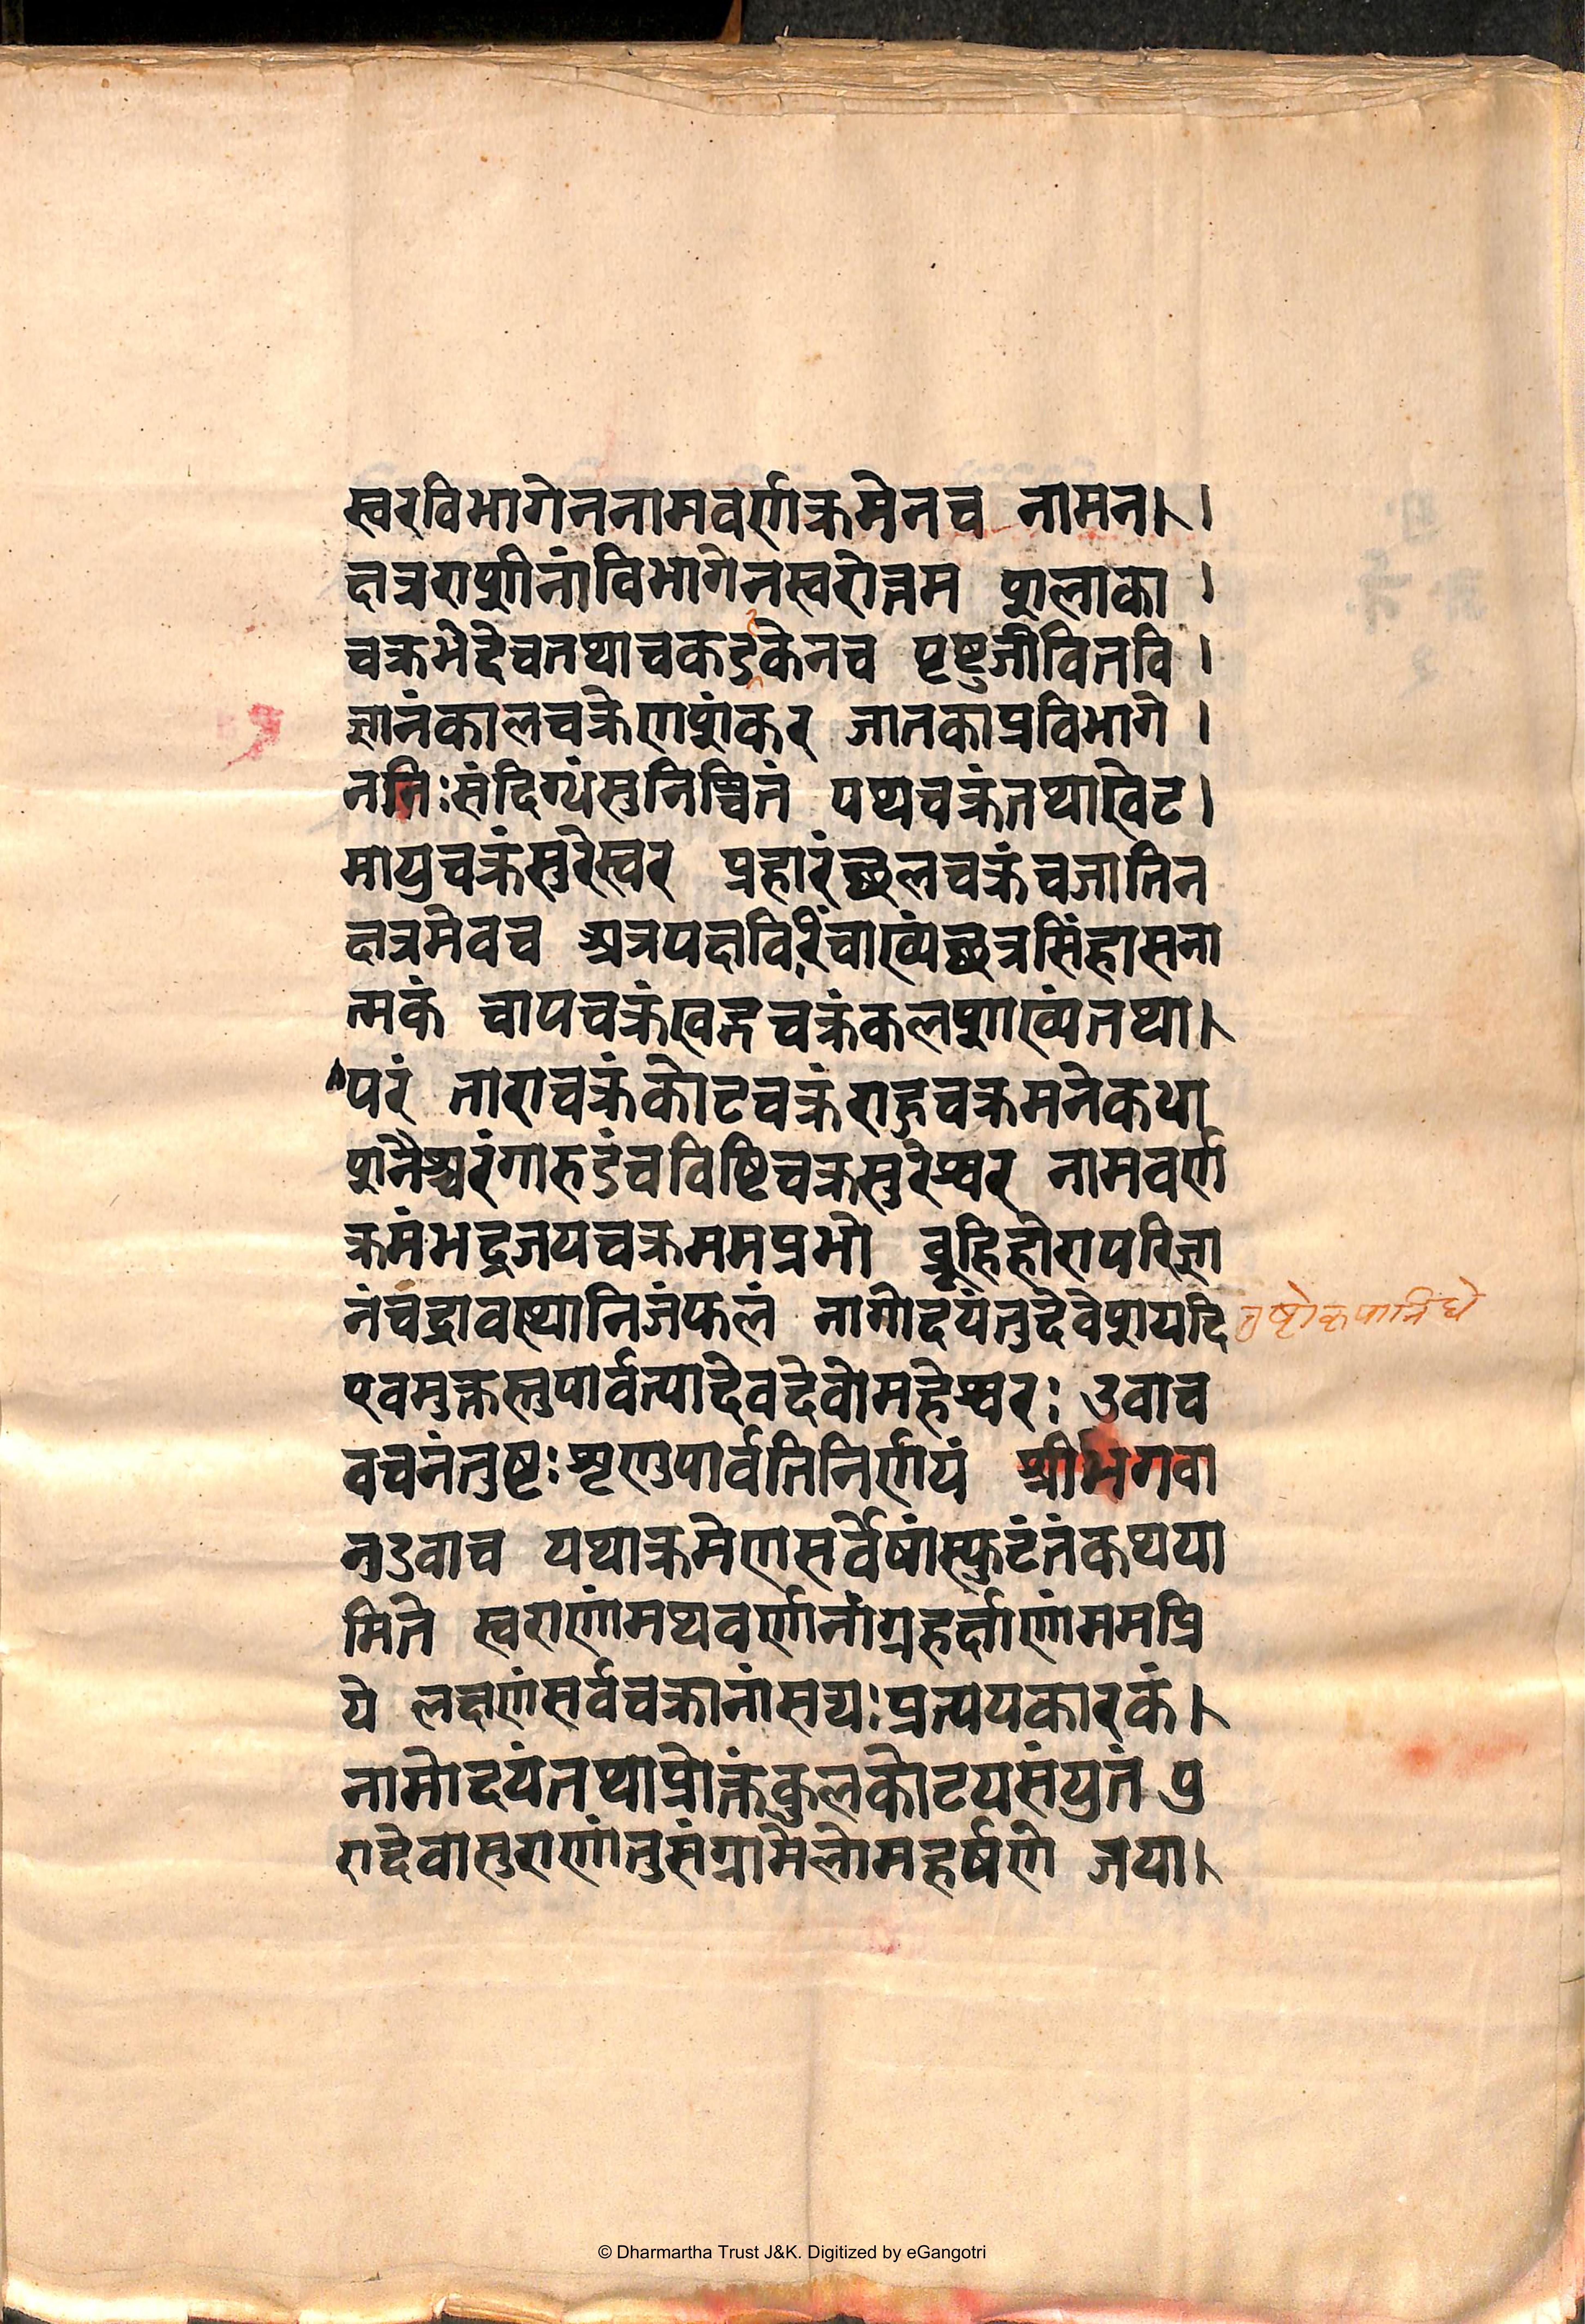 स्वरविभागेननामवर्णक्रमेनच नामन। ।
क्षत्रराशीनांविभागेनस्वरोत्तम शलाका ।
चक्रभेदेचतथाचकडकेनच पृष्टुजीवितवि ।
ज्ञानंकालचक्रेणशंकर जातकाप्रविभागे ।
ननिःसंदिग्धंसुनिश्चितं पथ्यचक्रंतथाखेट।
मायुचक्रंसुरेस्वर प्रहारंच्छूलचक्रंचजातिन
क्षत्रमेवच अत्रपक्षविरिंचाख्यंच्छत्रसिंहासना
त्मकं चापचक्रंखड्गचक्रंकलशाख्यंतथा।
परं ताराचक्रंकोटचक्रंराहुचक्रमनेकधा
शनैश्चरंगारुडंचविष्टिचक्रसुरेश्वर नामवर्ण
क्रमंभद्रजयचक्रममप्रभो ब्रूहिहोरापरिज्ञा
नंचंद्रावस्थानिजंफलं नागोदयंतुदेवेशयदि तुष्टोकृपानिधे
एवमुक्तस्तुपार्वत्यादेवदेवोमहेश्वरः उवाच
वचनंतुष्टःशृणुपार्वतिनिर्णयं श्रीभगवा
नुउवाच यथाक्रमेणसर्वेषांस्फुटंतंकथया
मिते स्वराणांमथवर्णानांग्रहर्क्षाणांममप्रि
ये लक्षणंसर्वचक्रानांसद्यःप्रत्ययकारकं।
नामोदयंतथाप्रोक्तंकुलकोटयसंयुतं पु
रादेवासुराणांतुसंग्रामेलोमहर्षणे जया।
© Dharmartha Trust J&K. Digitized by eGangotri